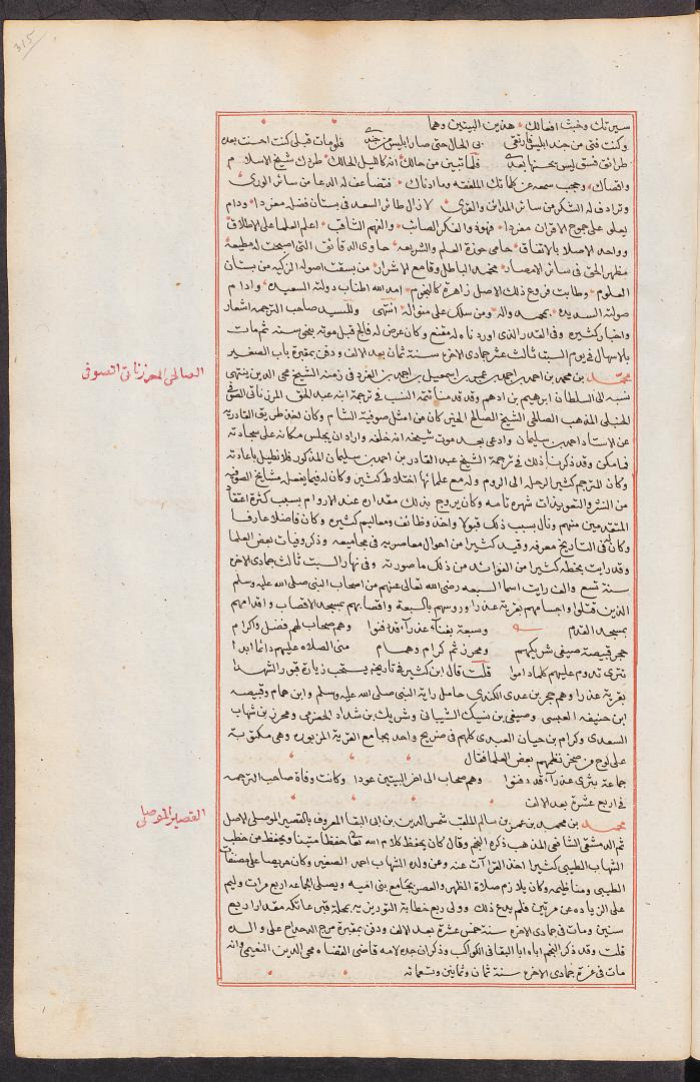 315
سيرتك وخبث افعالك هذين البيتين وهما
وكنت فتى من جند ابليس فارتقى بى الحال حتى صار ابليس من جندى فلو مات قبلى كنت احسنت بعده
طرائق فسق ليس يحسنها بعدى فلما تبين من حالك انه كالليل الحالك طردك شيخ الاسلام
واقصاك وحجب سمعه عن كلماتك الملفقه وما ادناك فتضاعف له الدعا من سائر الورى
وترادف له الشكر من سائر المدائن والقرى لا زال طائر السعد فى بستان فضله مغردا ودام
يعلو على جموع الاقران مفردا فهو ذو الفكر الصائب والفهم الثاقب اعلم العلما على الاطلاق
وواحد الاصلا بالاتفاق حامى حوزة العلم والشريعه حاوى الدقائق التى اصبحت له مطيعة
مظهر الحق فى سائر الامصار مخمد الباطل وقامع الاشرار من بسقت اصوله الزكيه من بستان
العلوم وطابت فروع ذلك الاصل زاهرة كالنجوم امد الله اطناب دولته السعيده وادام
صولته السديده بمحمد واله ومن سلك على منواله انتهى وللسيد صاحب الترجمه اشعار
واخبار كثيره وفى القدر الذى اوردناه له مقنع وكان عرض له فالج قبل موته بنحو سنه ثم مات
بالاسهال فى يوم السبت ثالث عشر جمادى الاخره سنة ثمان بعد الالف ودفن بمقبرة باب الصغير
الصالحى المرزناتى الصوفى
محمد بن محمد بن احمد بن احمد بن عمر بن اسمعيل بن احمد الفرد فى زمنه الشيخ محى الدين ينتهى
نسبه الى السلطان ابرهيم بن ادهم وقد قدمنا تتمة النسب فى ترجمة ابنه عبد الحق المرزناتى الصوفى
الحنبلى المذهب الصالحى الشيخ الصالح الخير كان من امثل صوفية الشام وكان اخذ طريق القادريه
عن الاستاد احمد بن سليمان وادعى بعد موت شيخه انه خلفه واراد ان يجلس مكانه على سجادته
فما مكن وقد ذكرنا ذلك فى ترجمة الشيخ عبد القادر بن احمد بن سليمان المذكور فلا نطيل باعادته
وكان المترجم كثير الرحله الى الروم وله مع علمائها اختلاط كثير وكان له فيما يفعل مشايخ الصوفيه
من النشر والتعويذات شهره تامه وكان يروج بذلك مقداره عند الاروام بسبب كثرة اعتقاد
المتقدمين منهم ونال بسبب ذلك قبولا واخذ وظائف ومعاليم كثيره وكان فاضلا عارفا
وكان فى التاريخ معرفه وقيد كثيرا من احوال معاصريه فى مجاميعه وذكر وفيات بعض العلما
وقد رايت بخطه كثيرا من الفوائد من ذلك ما صورته وفى نهار السبت ثالث جمادى الاخره
سنة تسع والف رايت اسما السبعه رضى الله تعالى عنهم من اصحاب النبى صلى الله عليه وسلم
الذين قتلوا واجسامهم بقرية عذرا وروسهم بالسبعة واقصابهم بمسجد الاقصاب واقدامهم
بمسجد القدم وسبعة بفناء عذراء قد دفنوا وهم صحاب لهم فضل واكرام
حجر قبيصة صيفى شريكهم ومحرز ثم كرام وهمام منى الصلاه عليهم دائما ابدا
تترى تدوم عليهم كلما داموا قلت قال ابن كثير فى تاريخه يستحب زيارة قبور الشهدا
بقرية عذرا وهم حجر بن عدى الكندى حامل راية النبى صلى الله عليه وسلم وابن همام وقبيصه
ابن حنيفه العبسى وصيفى بن نسيك الشيبانى وشريك بن شداد الحضرمى ومحرز بن شهاب
السعدى وكرام بن حيان العبدى كلهم فى ضريح واحد بجامع القرية المزبوره وهى مكتوبة
على لوح من صخر نظمهم بعض العلما فقال
جماعة بثرى عذراء قد دفنوا وهم صحاب الى اخر البيتين عودا وكانت وفاة صاحب الترجمه
فى اربع عشرة بعد الالف
القصير الموصلى
محمد بن محمد بن محمد بن سالم الملقب شمس الدين بن ابى البقا المعروف بالقصير الموصلى الاصل
ثم الدمشقى الشافعى المذهب ذكره النجم وقال كان يحفظ كلام الله تعالى حفظا متينا ويحفظ من خطب
الشهاب الطيبى كثيرا اخذ القراآت عنه وعن ولده الشهاب احمد الصغير وكان حريصا على مصنفات
الطيبى ومنافيعه وكان يلازم صلاة الظهر والعصر بجامع بنى اميه ويصلى الجماعه اربع مرات وليم
على الزياده عن مرتين فلم يدع ذلك وولى ربع خطابة التوريزيه بمحلة قبر عاتكه مقدار اربع
سنين ومات فى جمادى الاخره سنة خمس عشرة بعد الالف ودفن بمقبرة مرج الدحداح على والده
قلت وقد ذكر النجم اباه ابا البقا فى الكواكب وذكر ان جده لامه قاضى القضاه محى الدين النعيمى وانه
مات فى غرة جمادى الاخره سنة ثمان وثمانين وتسعمائه